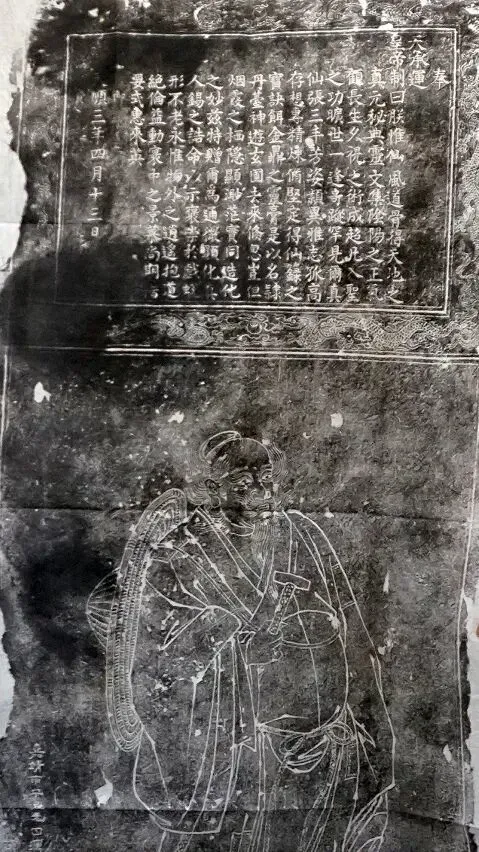 奉
天承運
皇帝制曰朕惟仙風道骨得天地之
真元秘典靈文集陰陽之正氣
顧長生久視之術成超凡入聖
之功曠世一逢奇蹤罕見爾真
仙張三丰芳姿穎異雅志孤高
存想專精煉修堅定得仙籙之
寶訣餌金鼎之靈膏是以名隸
丹臺神遊玄圃去來倏忽豈但
烟霞之栖隱顯渺茫實同造化
之妙茲特贈爾為通微顯化
人錫之誥命以示褒崇於戲
形不老永惟物外之逍遙抱道
絕倫益動寰中之景慕尚
要式惠來英
順三年四月十三日
嘉靖